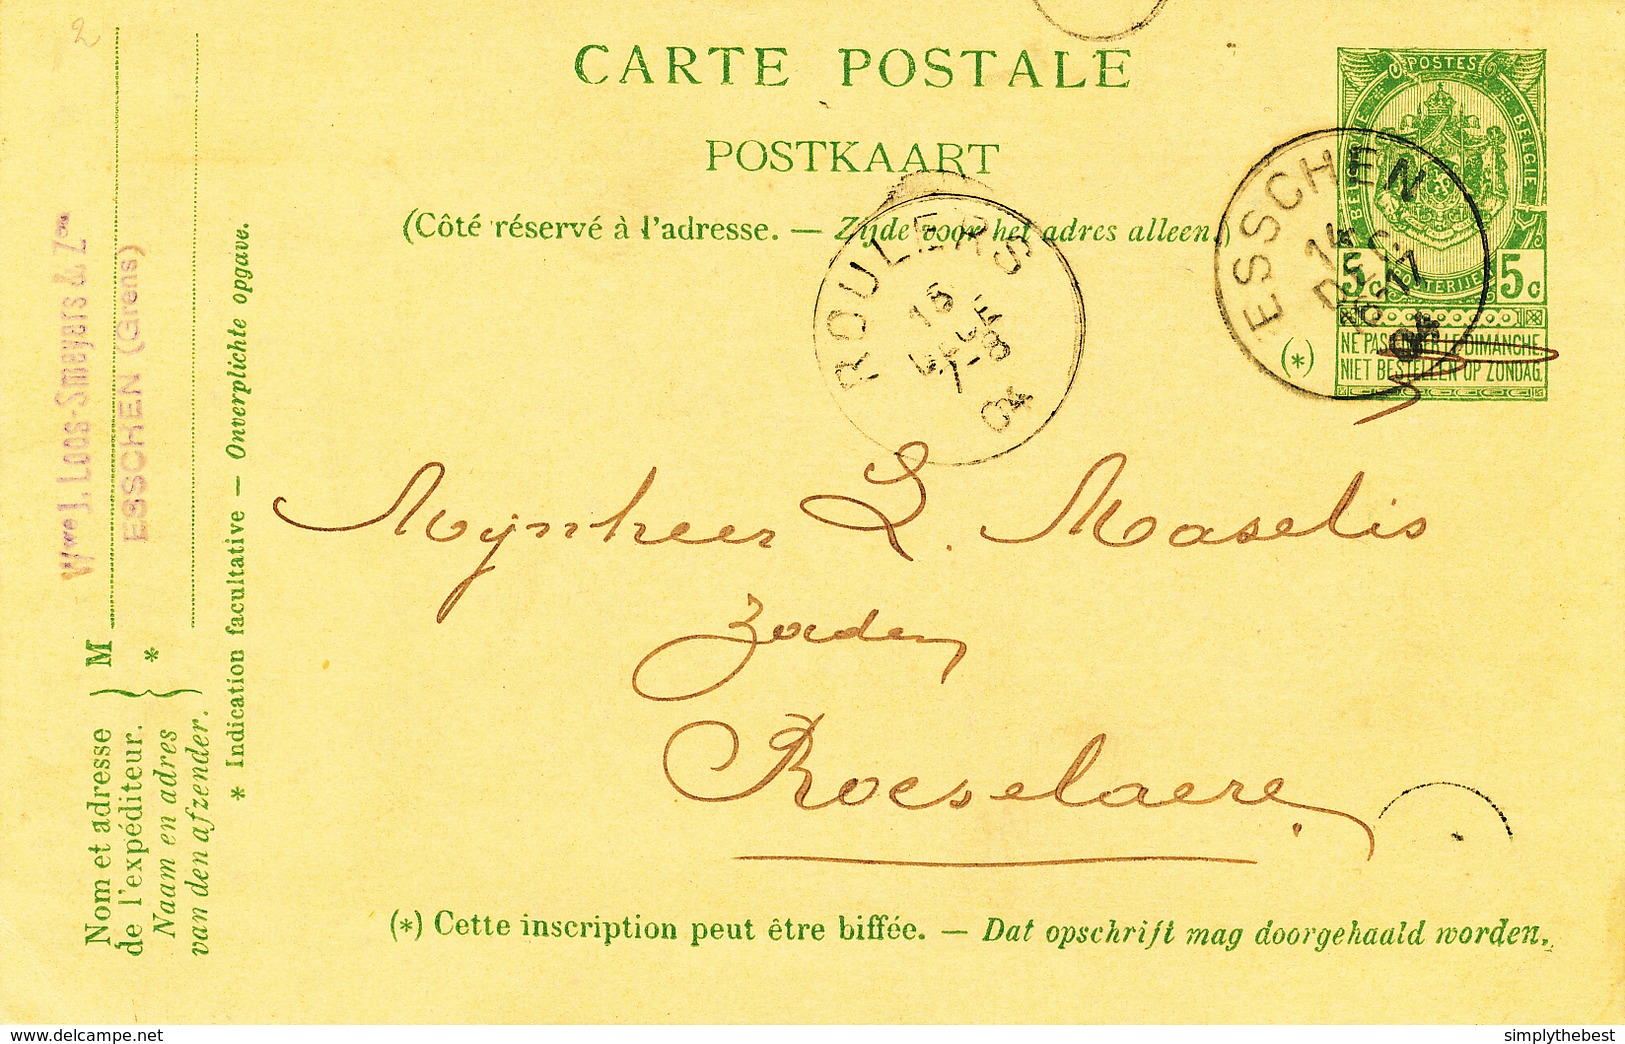 2
CARTE POSTALE
POSTKAART
(Côté réservé à l'adresse. — Zijde voor het adres alleen.)
POSTES
BELGIQUE
BELGIE
POSTERIJEN
5c 5c
NE PAS LIVRER LE DIMANCHE.
NIET BESTELLEN OP ZONDAG.
ESSCHEN
14
DEC
16-17
04
(*)
ROULERS
15
DECE
7-8
04
Mynheer L. Maselis
Zaden
Roeselaere.
(*) Cette inscription peut être biffée. — Dat opschrift mag doorgehaald worden.
Wwe J. Loos-Smeyers & Zon
ESSCHEN (Grens)
M
*
Nom et adresse
de l'expéditeur.
Naam en adres
van den afzender.
* Indication facultative — Onverplichte opgave.
delcampe.net
simplythebest